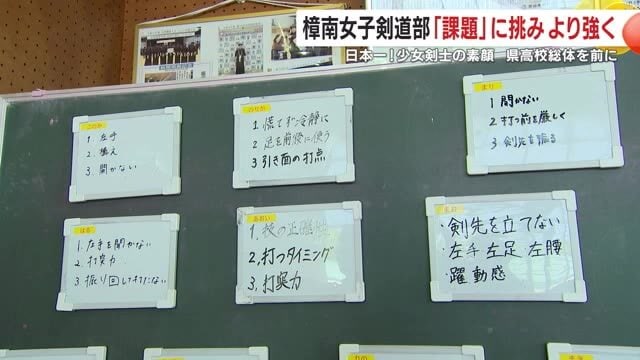 樟南女子剣道部「課題」に挑みより強く
日本一!少女剣士の素顔 県高校総体を前に
このか
1. 左手
2. 構え
3. 開かない
のりか
1. 慌てず冷静に
2. 足を前後に使う
3. 引き面の打点
まり
1 開かない
2 打つ前を厳しく
3 剣先を
はる
1. 左手を開かない
2. 打突力
3. 振り回して
あおい
1. 技の正確性
2. 打つタイミング
3. 打突力
まお
・剣先を立てない
・左手 左足 左腰
・躍動感